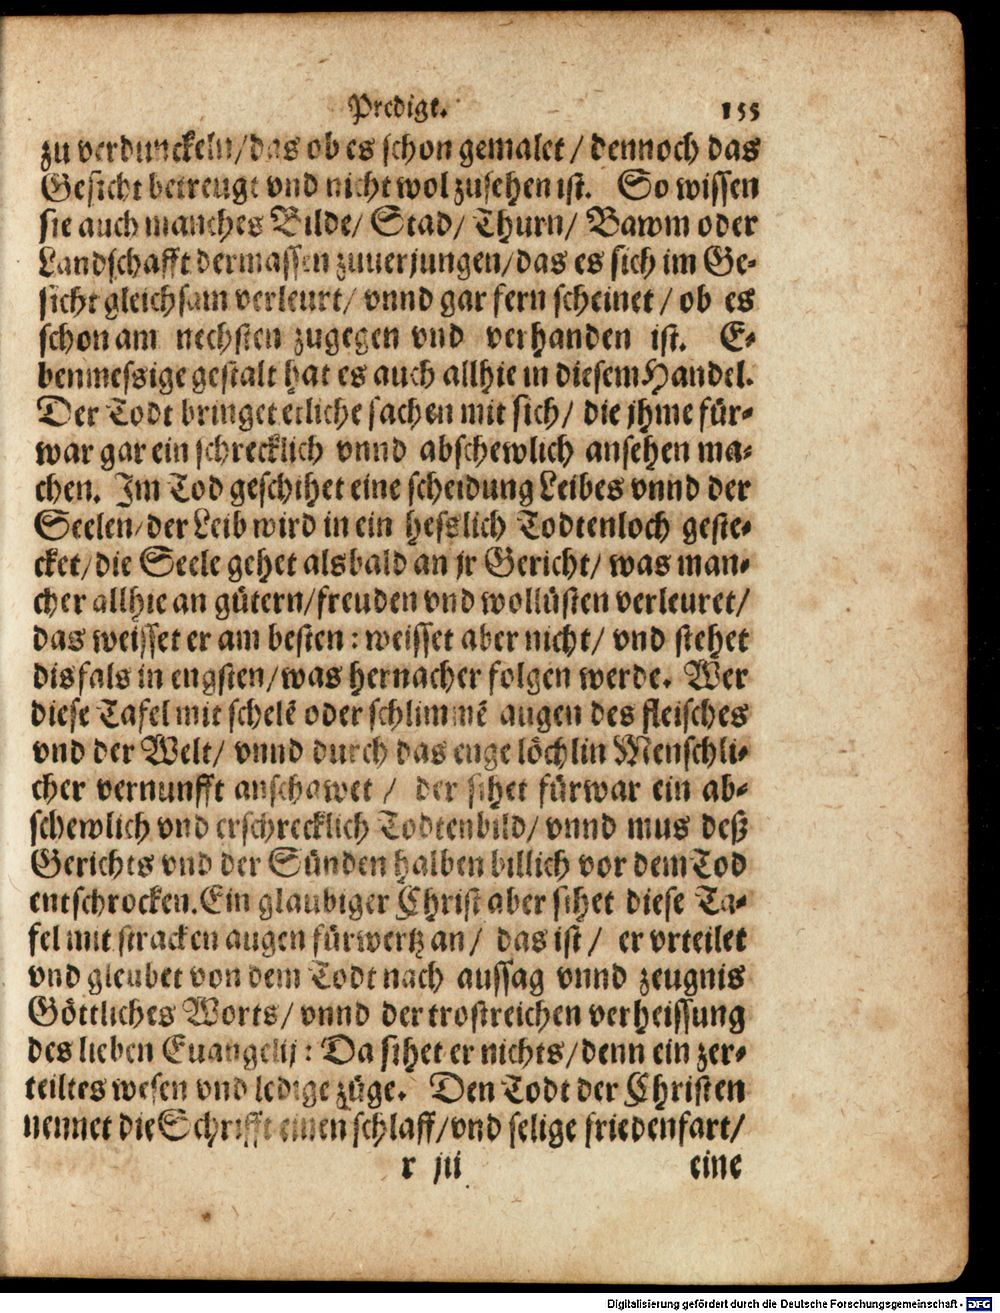 Predigt. 155
zu verdunckeln/das ob es schon gemalet / dennoch das
Gesicht betreugt vnd nicht wol zusehen ist. So wissen
sie auch manches Bilde/ Stad/ Thurn/ Bawm oder
Landschafft dermassen zuuerjungen/das es sich im Ge-
sicht gleichsam verleurt/ vnnd gar fern scheinet / ob es
schon am nechsten zugegen vnd verhanden ist. E-
benmessige gestalt hat es auch allhie in diesem Handel.
Der Todt bringet etliche sachen mit sich/ die jhme für-
war gar ein schrecklich vnnd abschewlich ansehen ma-
chen. Im Tod geschihet eine scheidung Leibes vnnd der
Seelen/der Leib wird in ein hesslich Todtenloch geste-
cket/die Seele gehet alsbald an jr Gericht/ was man-
cher allhie an gütern/freuden vnd wollüsten verleuret/
das weisset er am besten : weisset aber nicht/ vnd stehet
disfals in engsten/was hernacher folgen werde. Wer
diese Tafel mit schelē oder schlimmē augen des fleisches
vnd der Welt/ vnnd durch das enge löchlin Menschli-
cher vernunfft anschawet / der sihet fürwar ein ab-
schewlich vnd erschrecklich Todtenbild/ vnnd mus deß
Gerichts vnd der Sünden halben billich vor dem Tod
entschrocken. Ein glaubiger Christ aber sihet diese Ta-
fel mit stracken augen fürwertz an/ das ist / er vrteilet
vnd gleubet von dem Todt nach aussag vnnd zeugnis
Göttliches Worts/ vnnd der trostreichen verheissung
des lieben Euangelij : Da sihet er nichts/denn ein zer-
teiltes wesen vnd ledige züge. Den Todt der Christen
nennet die Schrifft einen schlaff/vnd selige friedenfart/
r iij eine
Digitalisierung gefördert durch die Deutsche Forschungsgemeinschaft - DFG